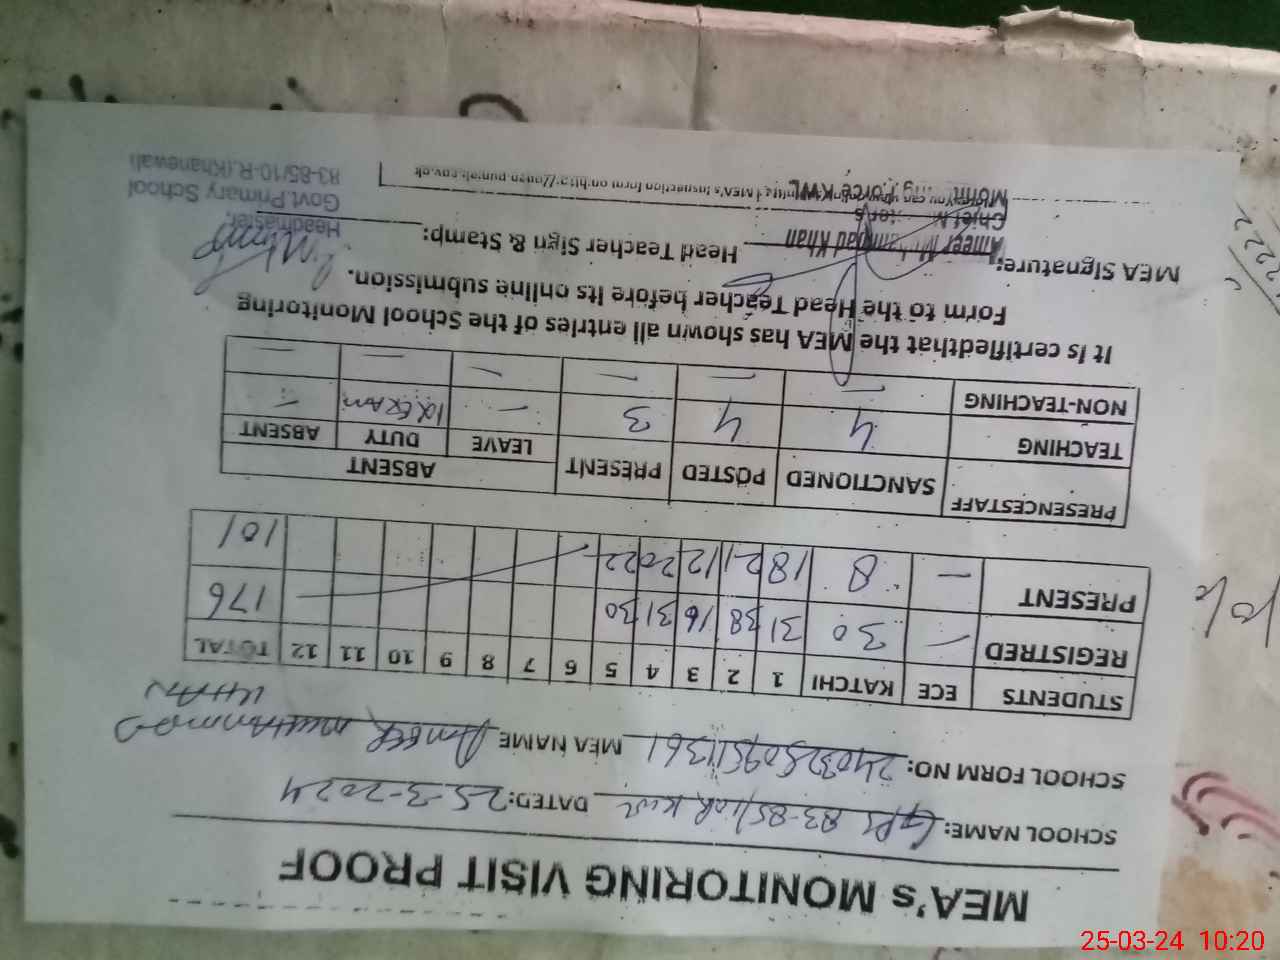 MEA's MONITORING VISIT PROOF
SCHOOL NAME: GPS 83-85/10R KWL DATED: 25-3-2024
SCHOOL FORM NO: MEA NAME AMEER MUHAMMAD
KHAN
STUDENTS ECE KATCHI 1 2 3 4 5 6 7 8 9 10 11 12 TOTAL
REGISTRED — 30 31 38 16 31 30 176
PRESENT — 8 18 21 12 20 22 101
PRESENCESTAFF SANCTIONED POSTED PRESENT ABSENT
LEAVE DUTY ABSENT
TEACHING 4 4 3 — — 
NON-TEACHING — — — — — —
It is certifiedthat the MEA has shown all entries of the School Monitoring
Form to the Head Teacher before its online submission.
MEA Signature: Head Teacher Sign & Stamp:
Ameer Muhammad Khan
Force KWL
Headmaster
Govt.Primary School
83-85/10-R.(Khanewal)
25-03-24 10:20